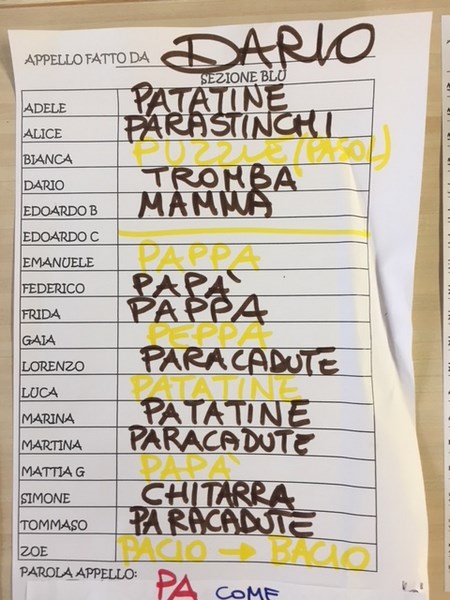 APPELLO FATTO DA DARIO
SEZIONE BLU
ADELE PATATINE
ALICE PARASTINCHI
BIANCA PUZZLE (PASOL)
DARIO TROMBA
EDOARDO B MAMMA
EDOARDO C
EMANUELE PAPPA
FEDERICO PAPA'
FRIDA PAPPA
GAIA PEPPA
LORENZO PARACADUTE
LUCA PATATINE
MARINA PATATINE
MARTINA PARACADUTE
MATTIA G PAPA'
SIMONE CHITARRA
TOMMASO PARACADUTE
ZOE PACIO → BACIO
PAROLA APPELLO: PA COME